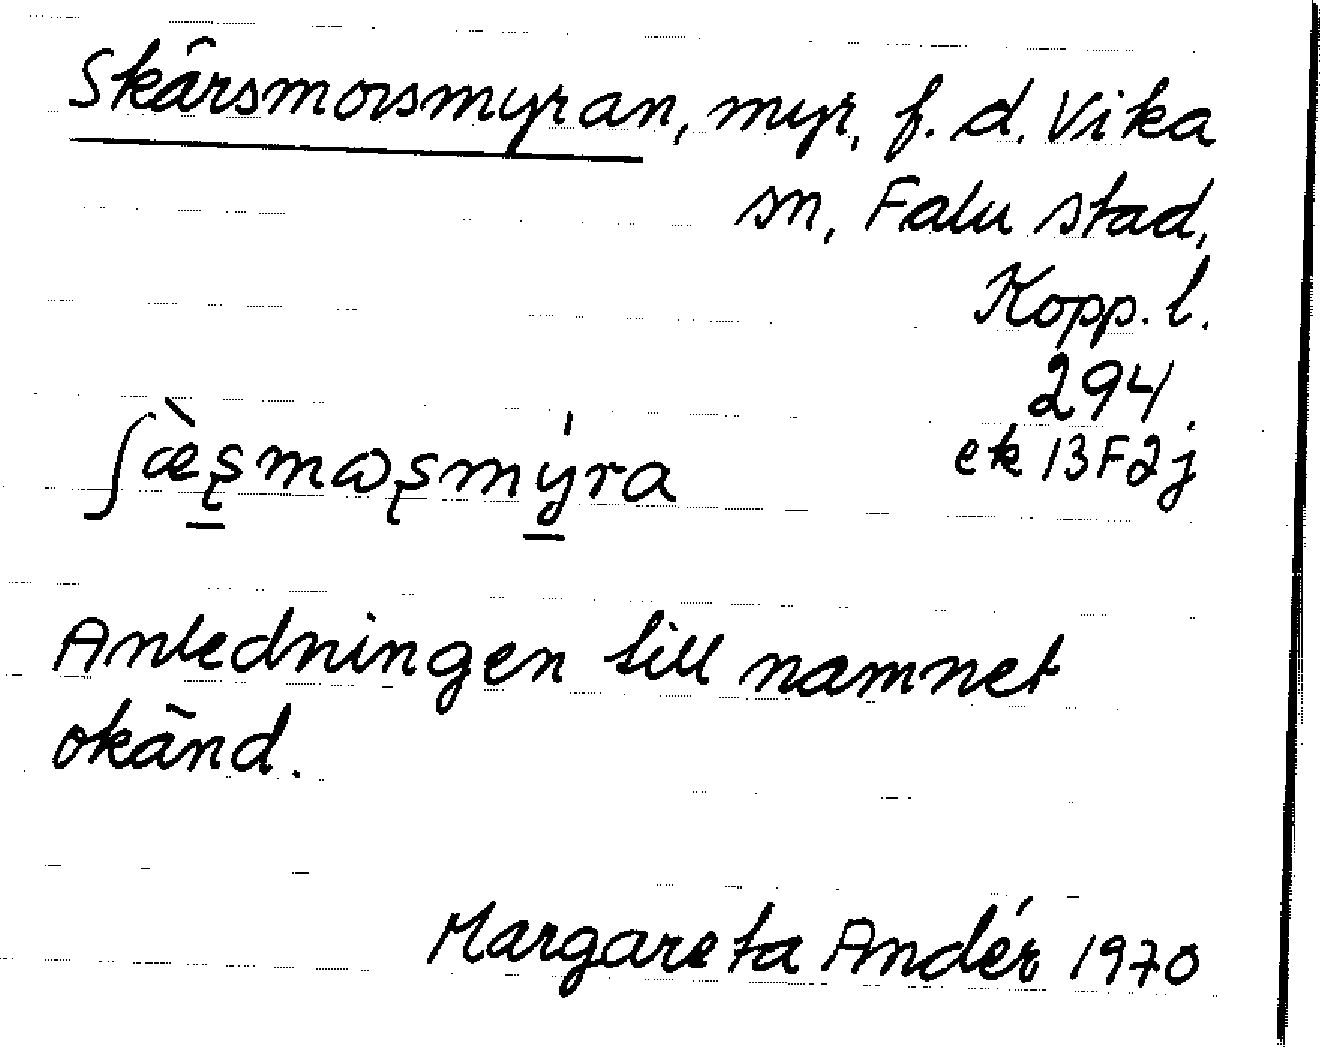 Skärsmorsmyran, myr, f. d. Vika
sn, Falu stad,
Kopp. l.
294.
ek 13F2j
ʃæ̀ʂmɷʂmýra
Anledningen till namnet
okänd.
Margareta Andér 1970